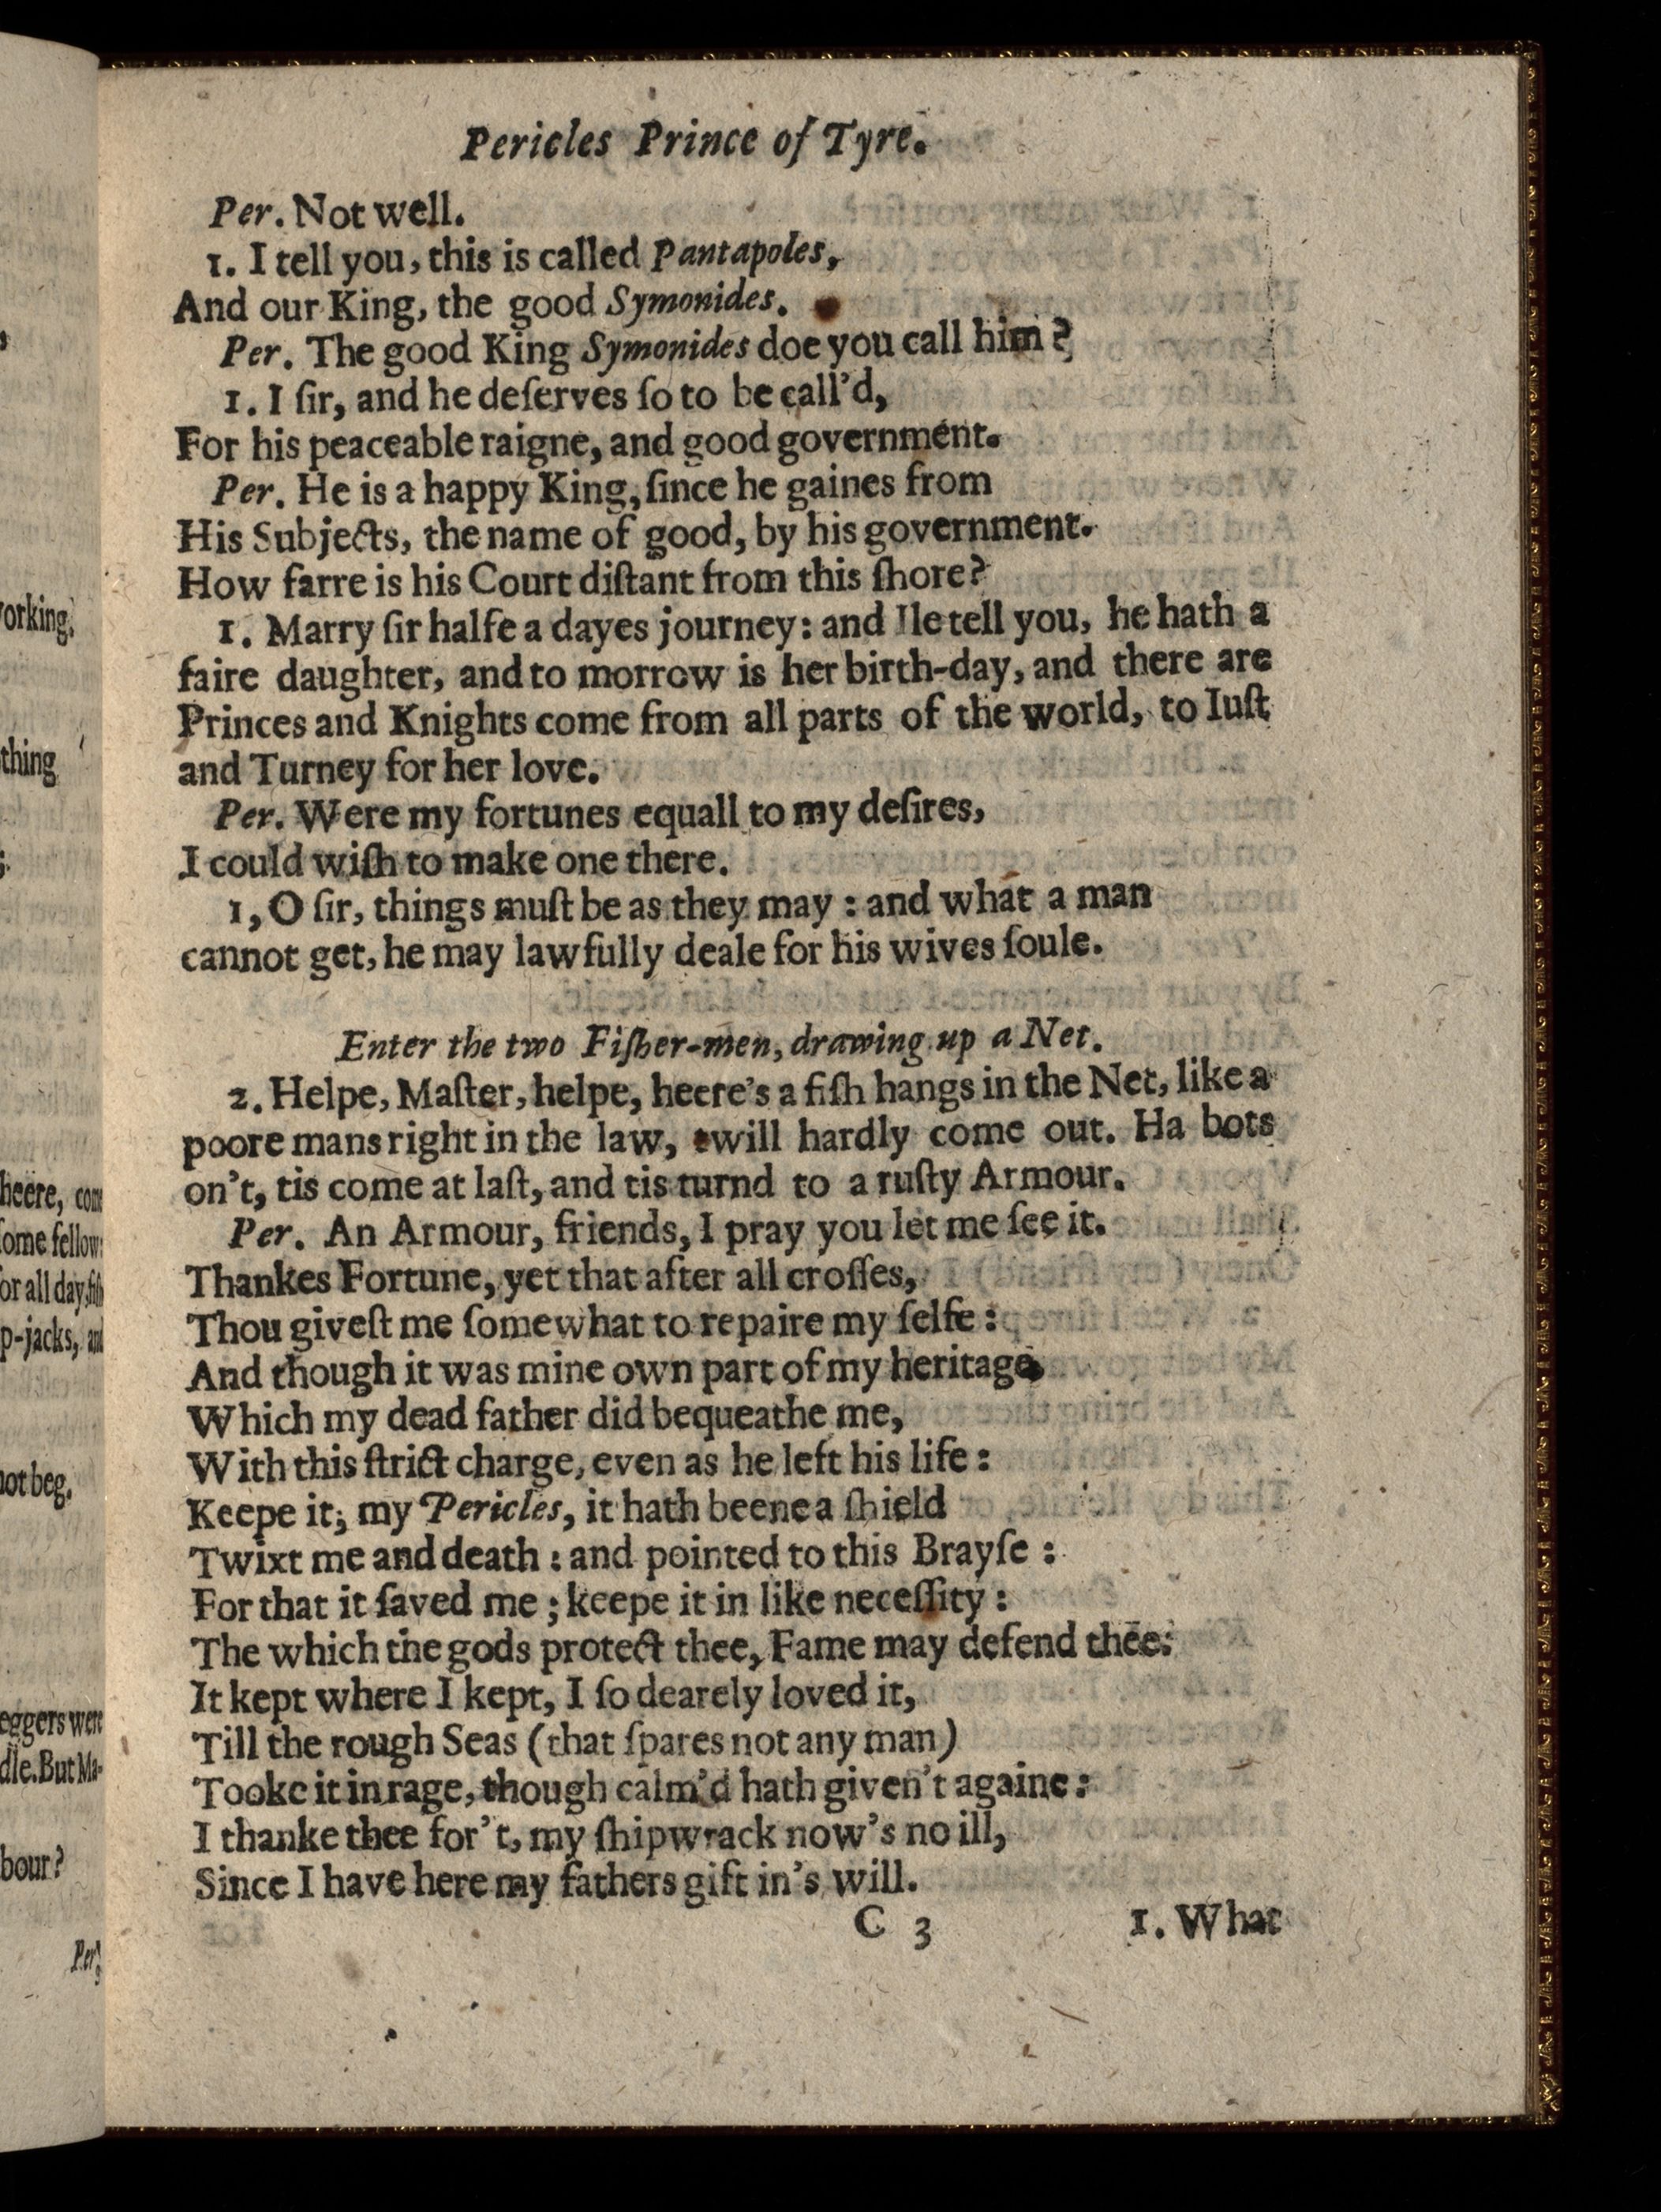 Pericles Prince of Tyre.
Per. Not well.
1. I tell you, this is called Pantapoles,
And our King, the good Symonides.
Per. The good King Symonides doe you call him?
1. I ſir, and he deſerves ſo to be call’d,
For his peaceable raigne, and good government.
Per. He is a happy King, ſince he gaines from
His Subjects, the name of good, by his government.
How farre is his Court diſtant from this ſhore?
1. Marry ſir halfe a dayes journey: and Ile tell you, he hath a
faire daughter, and to morrow is her birth-day, and there are
Princes and Knights come from all parts of the world, to Iuſt
and Turney for her love.
Per. Were my fortunes equall to my deſires,
I could wiſh to make one there.
1, O ſir, things muſt be as they may: and what a man
cannot get, he may lawfully deale for his wives ſoule.
Enter the two Fiſher-men, drawing up a Net.
2. Helpe, Maſter, helpe, heere’s a fiſh hangs in the Net, like a
poore mans right in the law, twill hardly come out. Ha bots
on’t, tis come at laſt, and tis turnd to a ruſty Armour.
Per. An Armour, friends, I pray you let me ſee it.
Thankes Fortune, yet that after all croſſes,
Thou giveſt me ſomewhat to repaire my ſelfe:
And though it was mine own part of my heritage
Which my dead father did bequeathe me,
With this ſtrict charge, even as he left his life:
Keepe it; my Pericles, it hath beene a ſhield
Twixt me and death: and pointed to this Brayſe:
For that it ſaved me; keepe it in like neceſſity:
The which the gods protect thee, Fame may defend thee:
It kept where I kept, I ſo dearely loved it,
Till the rough Seas (that ſpares not any man)
Tooke it in rage, though calm’d hath given’t againe:
I thanke thee for’t, my ſhipwrack now’s no ill,
Since I have here my fathers gift in’s will.
C 3 1. What
orking.
thing
heere, come
ſome fellow
or all day, fiſh
p-jacks, and
not beg.
eggers were
dle. But Ma-
bour?
Per.